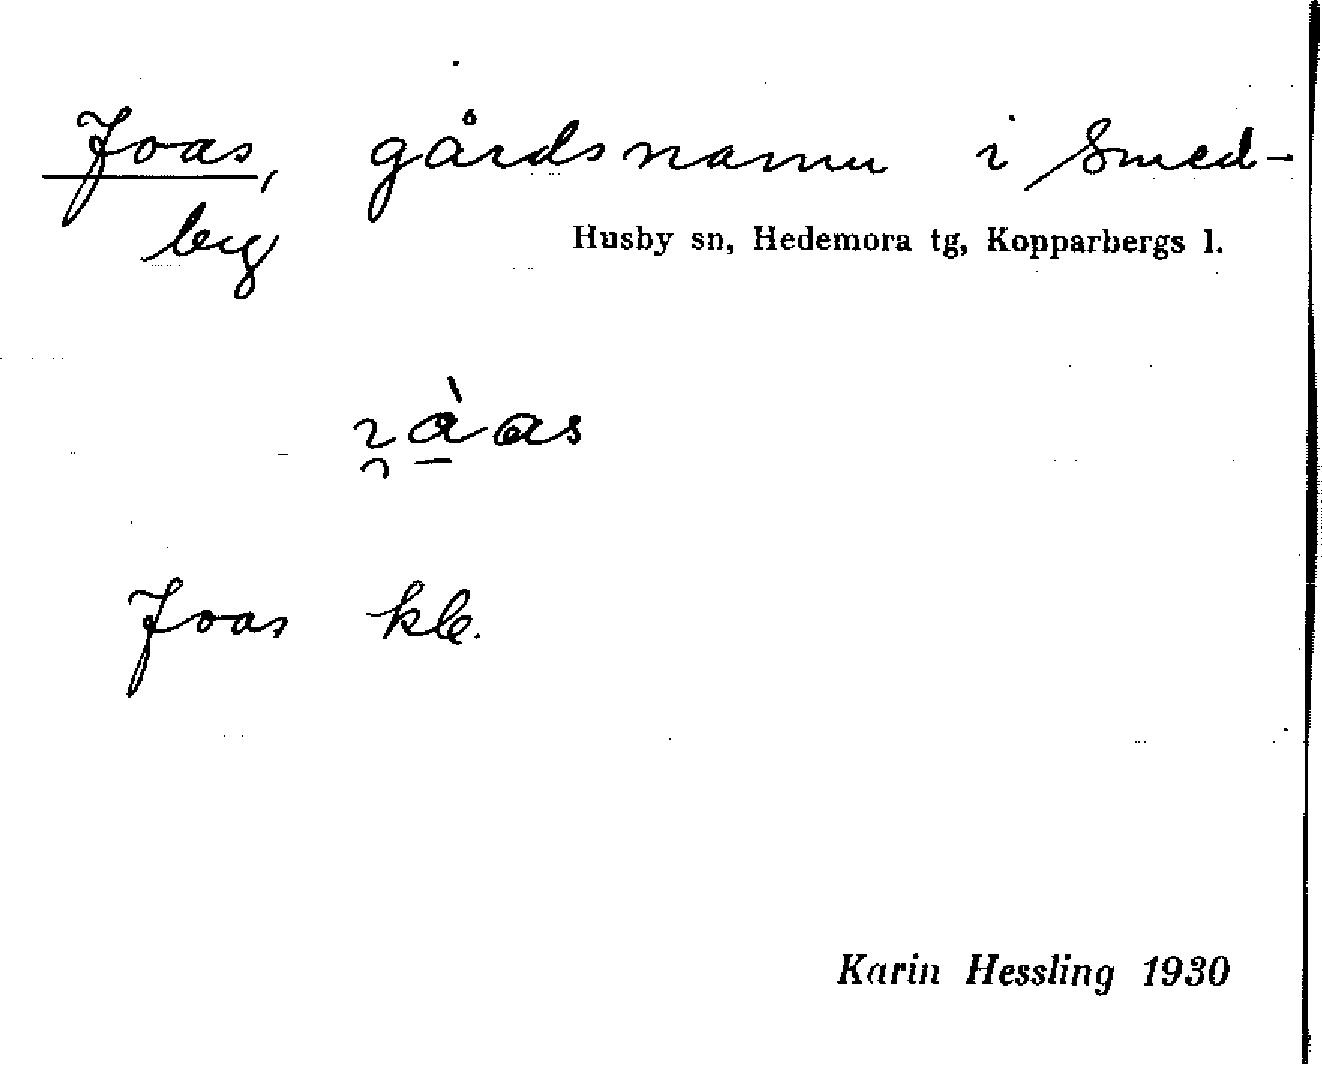 Joas, gårdsnamn i Smed-
by
Husby sn, Hedemora tg, Kopparbergs l.
Joas kb.
Karin Hessling 1930